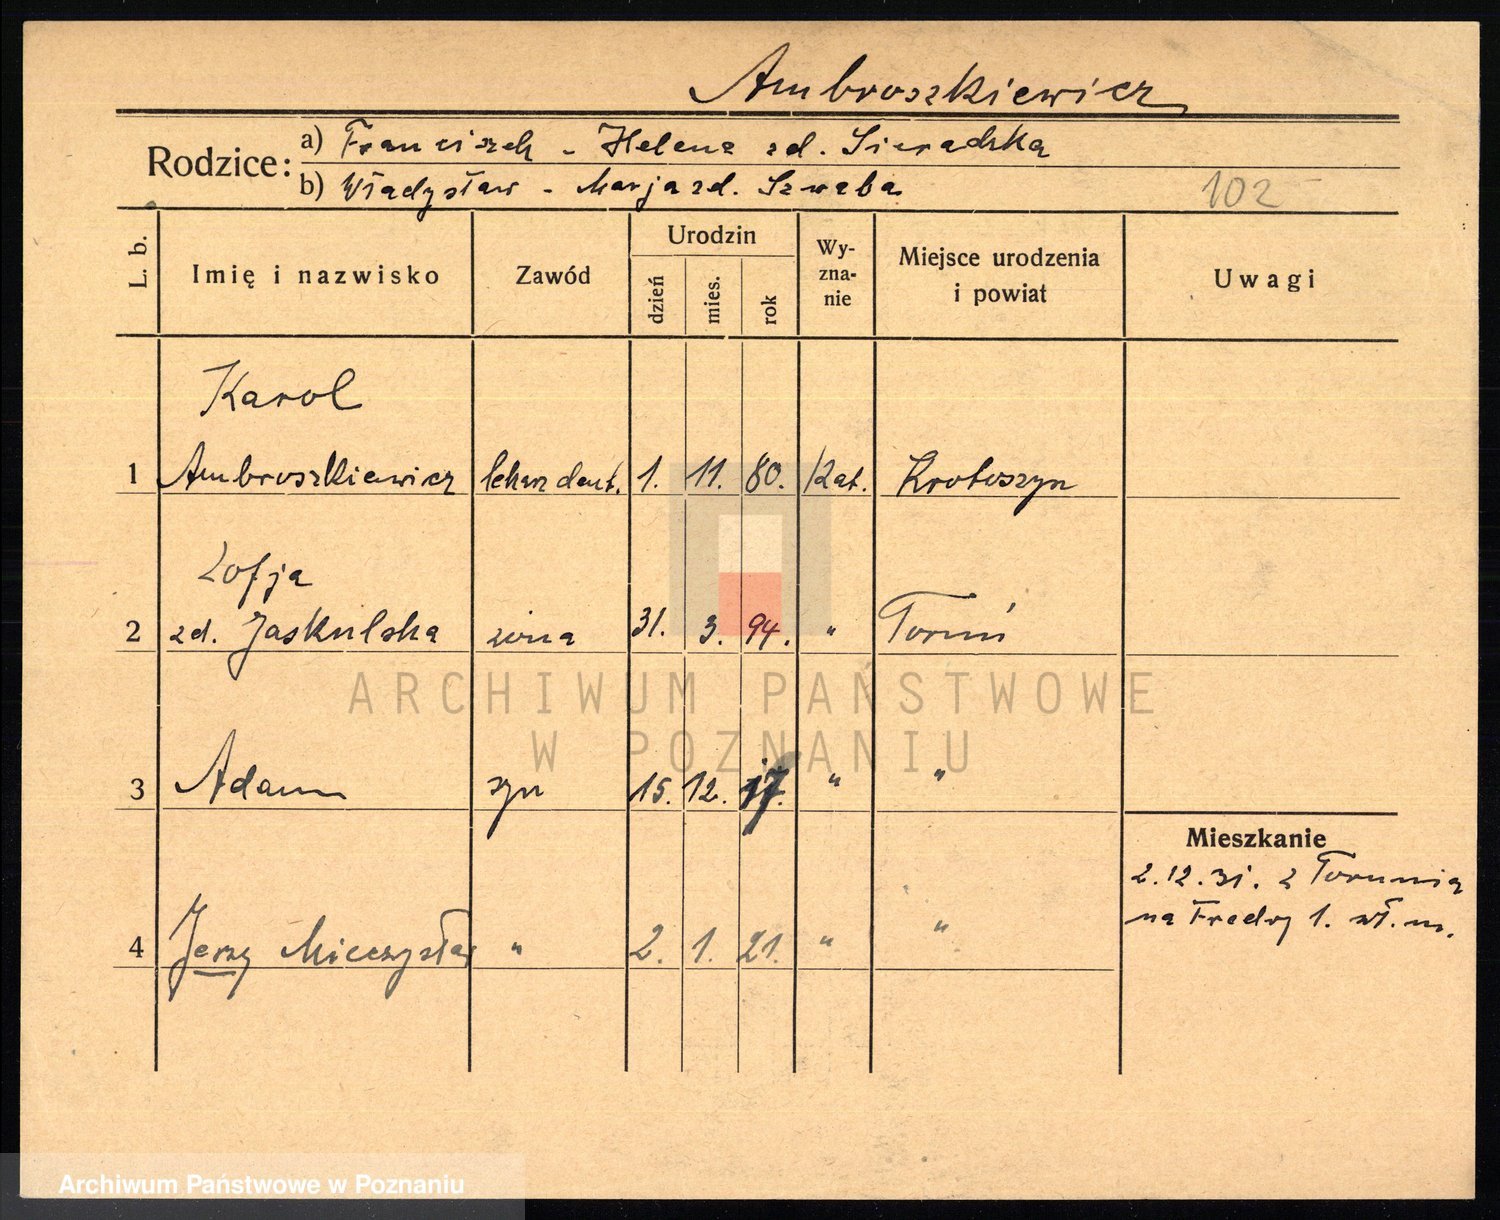 Ambroszkiewicz
Rodzice: a) Franciszek - Helena zd. Sieradzka
b) Władysław - Marja zd. Szwaba
102
L. b. Imię i nazwisko Zawód Urodzin dzień mies. rok Wy-zna-nie Miejsce urodzenia i powiat Uwagi
Karol
1 Ambroszkiewicz lekarz dent. 1. 11. 80. Kat. Krotoszyn
Zofja
2 zd. Jaskulska żona 31. 3. 94. " Toruń
ARCHIWUM PAŃSTWOWE
W POZNANIU
3 Adam syn 15. 12. 17. " "
Mieszkanie
2.12.31. z Torunia
na Fredry 1. wł. m.
4 Jerzy Mieczysław " 2. 1. 21. " "
Archiwum Państwowe w Poznaniu